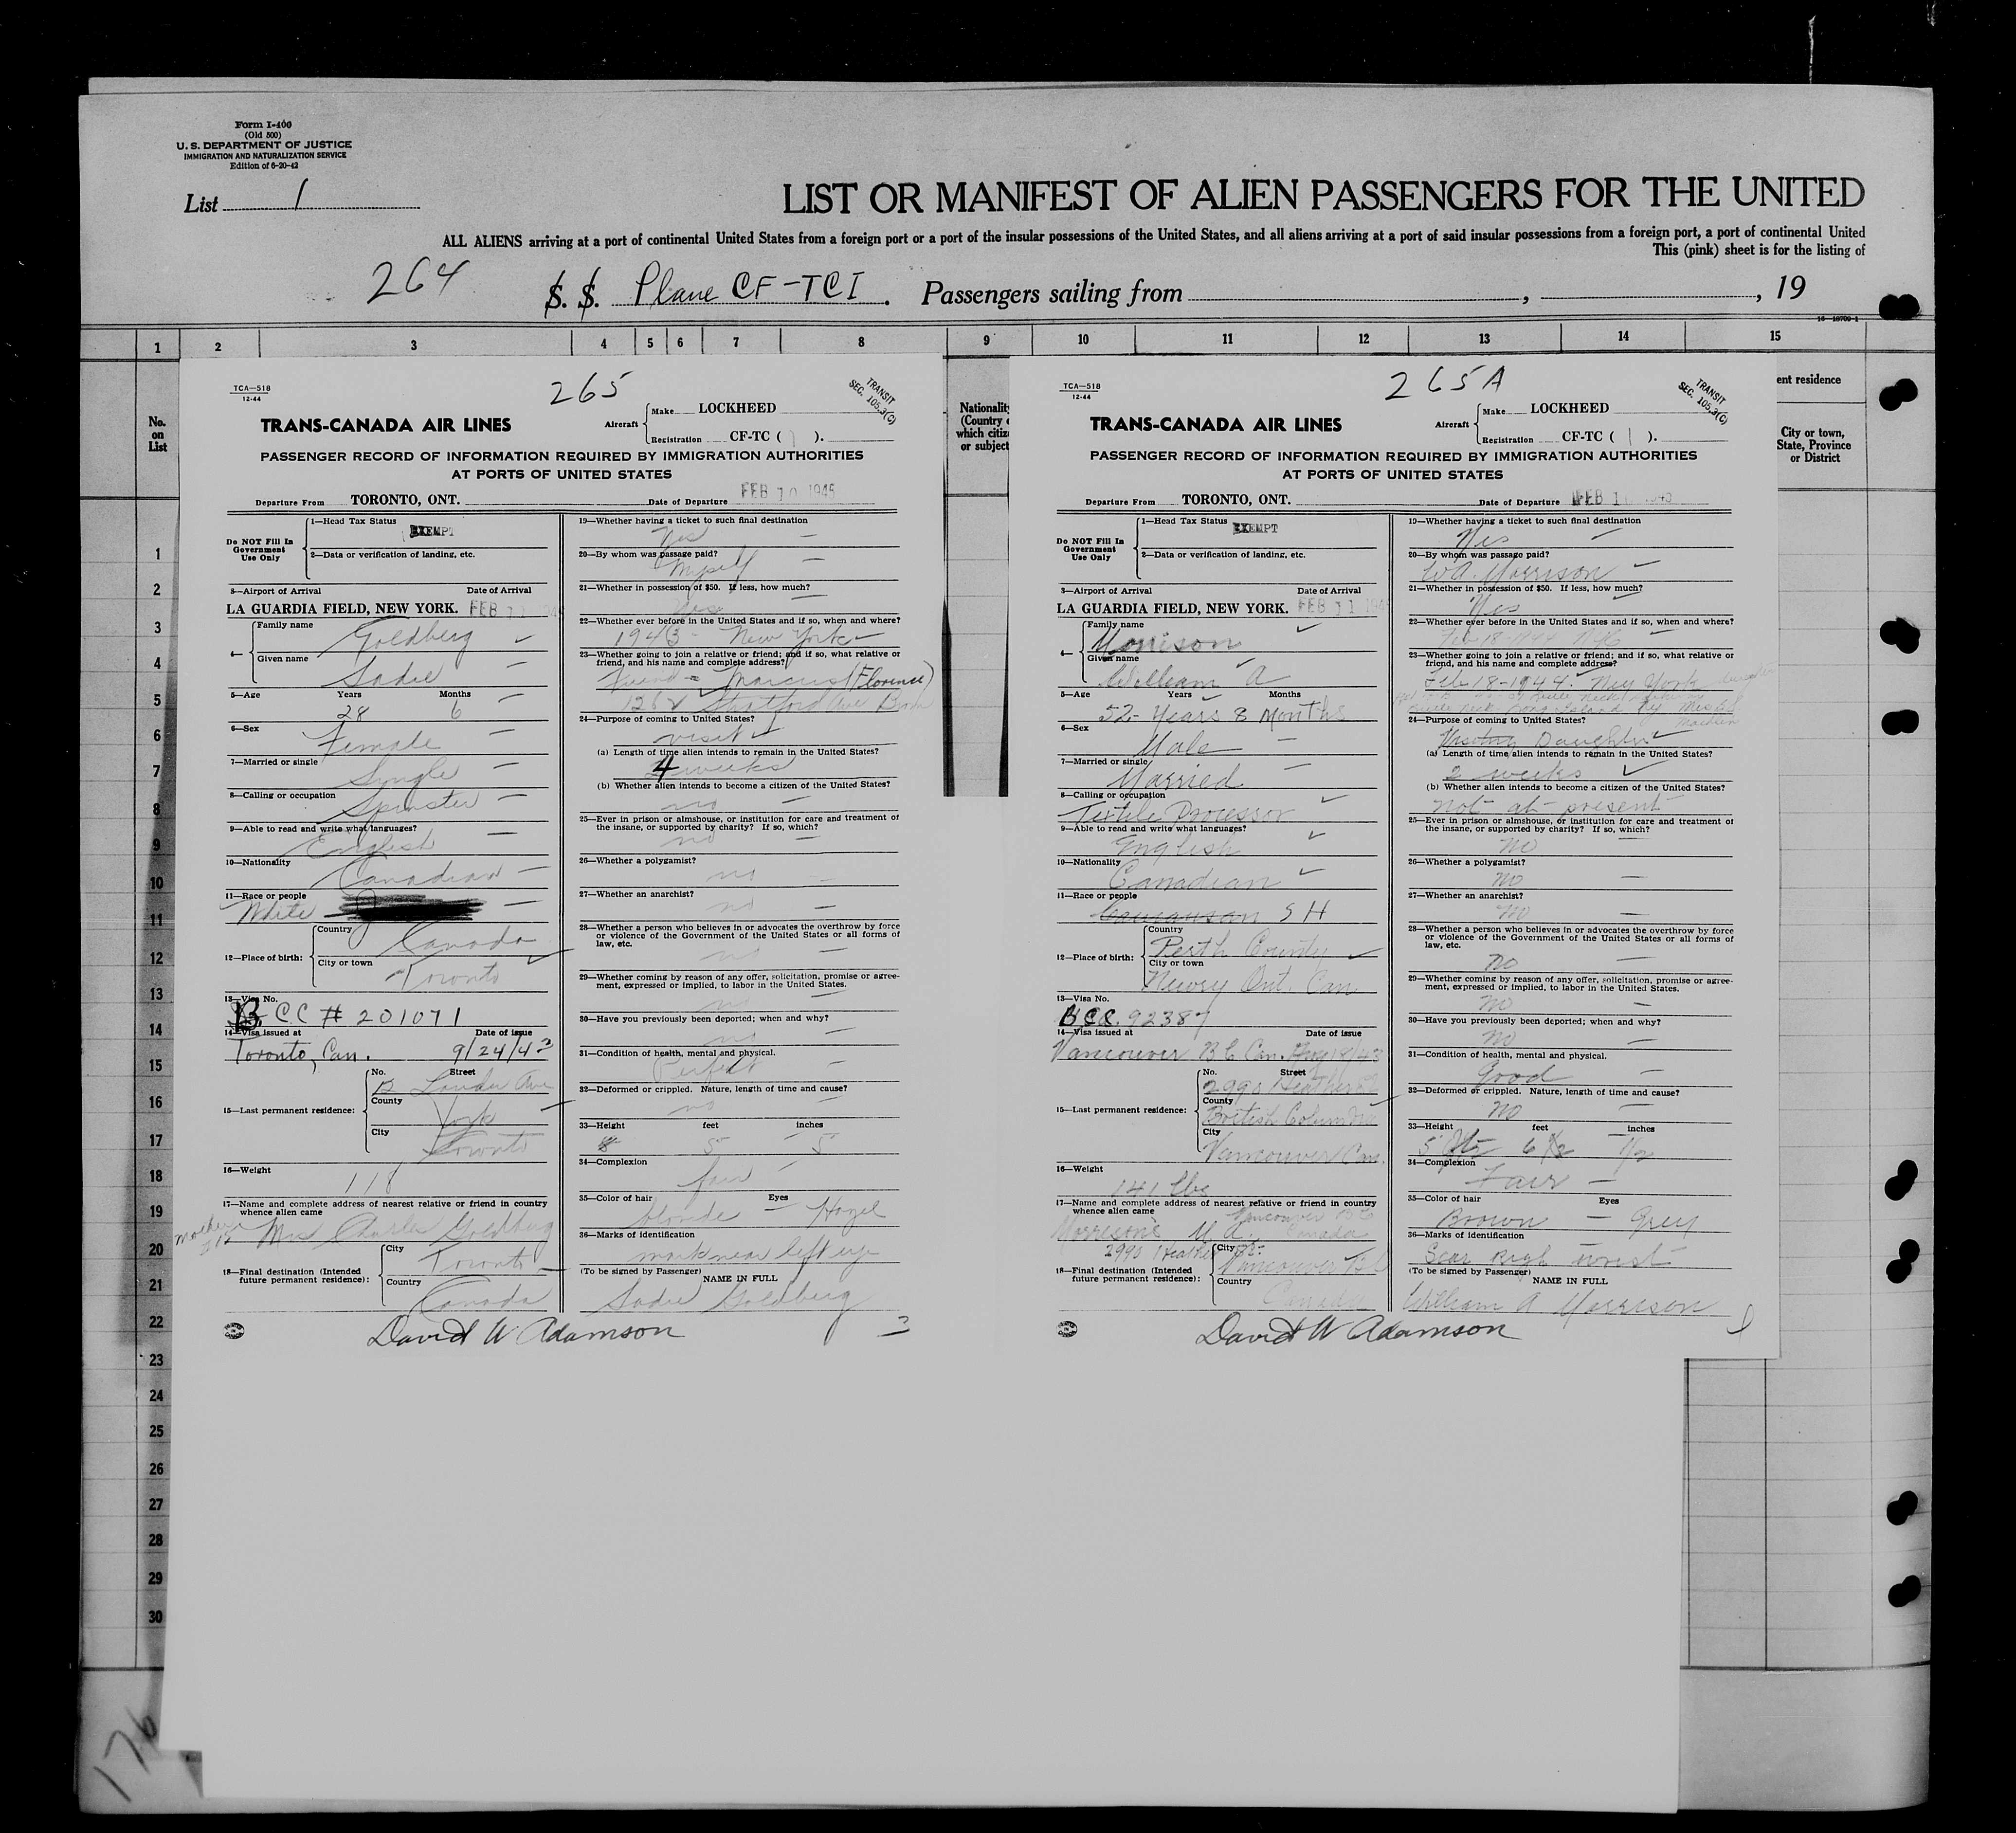 Form I-400
(Old 500)
U. S. DEPARTMENT OF JUSTICE
IMMIGRATION AND NATURALIZATION SERVICE
Edition of 6-20-42
List 1
LIST OR MANIFEST OF ALIEN PASSENGERS FOR THE UNITED
ALL ALIENS arriving at a port of continental United States from a foreign port or a port of the insular possessions of the United States, and all aliens arriving at a port of said insular possessions from a foreign port, a port of continental United
This (pink) sheet is for the listing of
264 S. S. Plane CF-TCI. Passengers sailing from , , 19
1 2 3 4 5 6 7 8 9 10 11 12 13 14 15
No.
on
List
1
2
3
4
5
6
7
8
9
10
11
12
13
14
15
16
17
18
19
20
21
22
23
24
25
26
27
28
29
30
176
TCA—518
12-44
265
TRANSIT
SEC. 105.3(C)
TRANS-CANADA AIR LINES
Aircraft
Make LOCKHEED
Registration CF-TC ( ).
PASSENGER RECORD OF INFORMATION REQUIRED BY IMMIGRATION AUTHORITIES
AT PORTS OF UNITED STATES
Departure From TORONTO, ONT. Date of Departure FEB 10 1945
Do NOT Fill In
Government
Use Only
1—Head Tax Status EXEMPT
2—Data or verification of landing, etc.
3—Airport of Arrival Date of Arrival
LA GUARDIA FIELD, NEW YORK. FEB 11 194
4—
Family name Goldberg
Given name Sadie
5—Age Years Months
28 6
6—Sex
Female
7—Married or single
Single
8—Calling or occupation
Spinster
9—Able to read and write what languages?
English
10—Nationality
Canadian
11—Race or people
White
12—Place of birth:
Country Canada
City or town
Toronto
13—Visa No.
B.C.C # 201071
14—Visa issued at Date of issue
Toronto, Can. 9/24/43
15—Last permanent residence:
No. Street
12 Ave
County
York
City
Toronto
16—Weight
118
17—Name and complete address of nearest relative or friend in country
whence alien came
mother Mrs Charles Goldberg
18—Final destination (Intended
future permanent residence):
City
Toronto
Country
Canada
19—Whether having a ticket to such final destination
Yes
20—By whom was passage paid?
Myself
21—Whether in possession of $50. If less, how much?
Yes
22—Whether ever before in the United States and if so, when and where?
1943 - New York
23—Whether going to join a relative or friend; and if so, what relative or
friend, and his name and complete address?
Friend = Marcus (Florence)
Stratford Ave Bronx
24—Purpose of coming to United States?
visit
(a) Length of time alien intends to remain in the United States?
4 weeks
(b) Whether alien intends to become a citizen of the United States?
no
25—Ever in prison or almshouse, or institution for care and treatment of
the insane, or supported by charity? If so, which?
no
26—Whether a polygamist?
no
27—Whether an anarchist?
no
28—Whether a person who believes in or advocates the overthrow by force
or violence of the Government of the United States or all forms of
law, etc.
no
29—Whether coming by reason of any offer, solicitation, promise or agree-
ment, expressed or implied, to labor in the United States.
no
30—Have you previously been deported; when and why?
no
31—Condition of health, mental and physical.
Perfect
32—Deformed or crippled. Nature, length of time and cause?
no
33—Height feet inches
5 5
34—Complexion
fair
35—Color of hair Eyes
blonde - Hazel
36—Marks of identification
mark near left eye
(To be signed by Passenger) NAME IN FULL
Sadie Goldberg
David W Adamson
Nationality
(Country
which citiz
or subject
TCA—518
12-44
265A
TRANSIT
SEC. 105.3(C)
TRANS-CANADA AIR LINES
Aircraft
Make LOCKHEED
Registration CF-TC ( ).
PASSENGER RECORD OF INFORMATION REQUIRED BY IMMIGRATION AUTHORITIES
AT PORTS OF UNITED STATES
Departure From TORONTO, ONT. Date of Departure FEB 1 1945
Do NOT Fill In
Government
Use Only
1—Head Tax Status EXEMPT
2—Data or verification of landing, etc.
3—Airport of Arrival Date of Arrival
LA GUARDIA FIELD, NEW YORK. FEB 11 194
4—
Family name
Morrison
Given name
William A
5—Age Years Months
52- Years 8 Months
6—Sex
Male
7—Married or single
Married
8—Calling or occupation
Textile Processor
9—Able to read and write what languages?
English
10—Nationality
Canadian
11—Race or people
S H
12—Place of birth:
Country
Perth County
City or town
Newry Ont. Can
13—Visa No.
BCC. 92387
14—Visa issued at Date of issue
Vancouver B C Can. Aug
15—Last permanent residence:
No. Street
2990 Heather St
County
British Columbia
City
Vancouver Can.
16—Weight
141 lbs
17—Name and complete address of nearest relative or friend in country
whence alien came
Vancouver BC
Canada
2990 Heather St
18—Final destination (Intended
future permanent residence):
City
Vancouver B.C
Country
Canada
19—Whether having a ticket to such final destination
Yes
20—By whom was passage paid?
W A. Morrison
21—Whether in possession of $50. If less, how much?
Yes
22—Whether ever before in the United States and if so, when and where?
23—Whether going to join a relative or friend; and if so, what relative or
friend, and his name and complete address?
Feb 18-1944. New York
24—Purpose of coming to United States?
Visiting Daughter
(a) Length of time alien intends to remain in the United States?
2 weeks
(b) Whether alien intends to become a citizen of the United States?
not - at - present
25—Ever in prison or almshouse, or institution for care and treatment of
the insane, or supported by charity? If so, which?
no
26—Whether a polygamist?
no
27—Whether an anarchist?
no
28—Whether a person who believes in or advocates the overthrow by force
or violence of the Government of the United States or all forms of
law, etc.
no
29—Whether coming by reason of any offer, solicitation, promise or agree-
ment, expressed or implied, to labor in the United States.
no
30—Have you previously been deported; when and why?
no
31—Condition of health, mental and physical.
Good
32—Deformed or crippled. Nature, length of time and cause?
no
33—Height feet inches
5 6 1/2
34—Complexion
Fair
35—Color of hair Eyes
Brown - Grey
36—Marks of identification
Scar Righ wrist
(To be signed by Passenger) NAME IN FULL
William A Morrison
David W Adamson
ent residence
City or town,
State, Province
or District